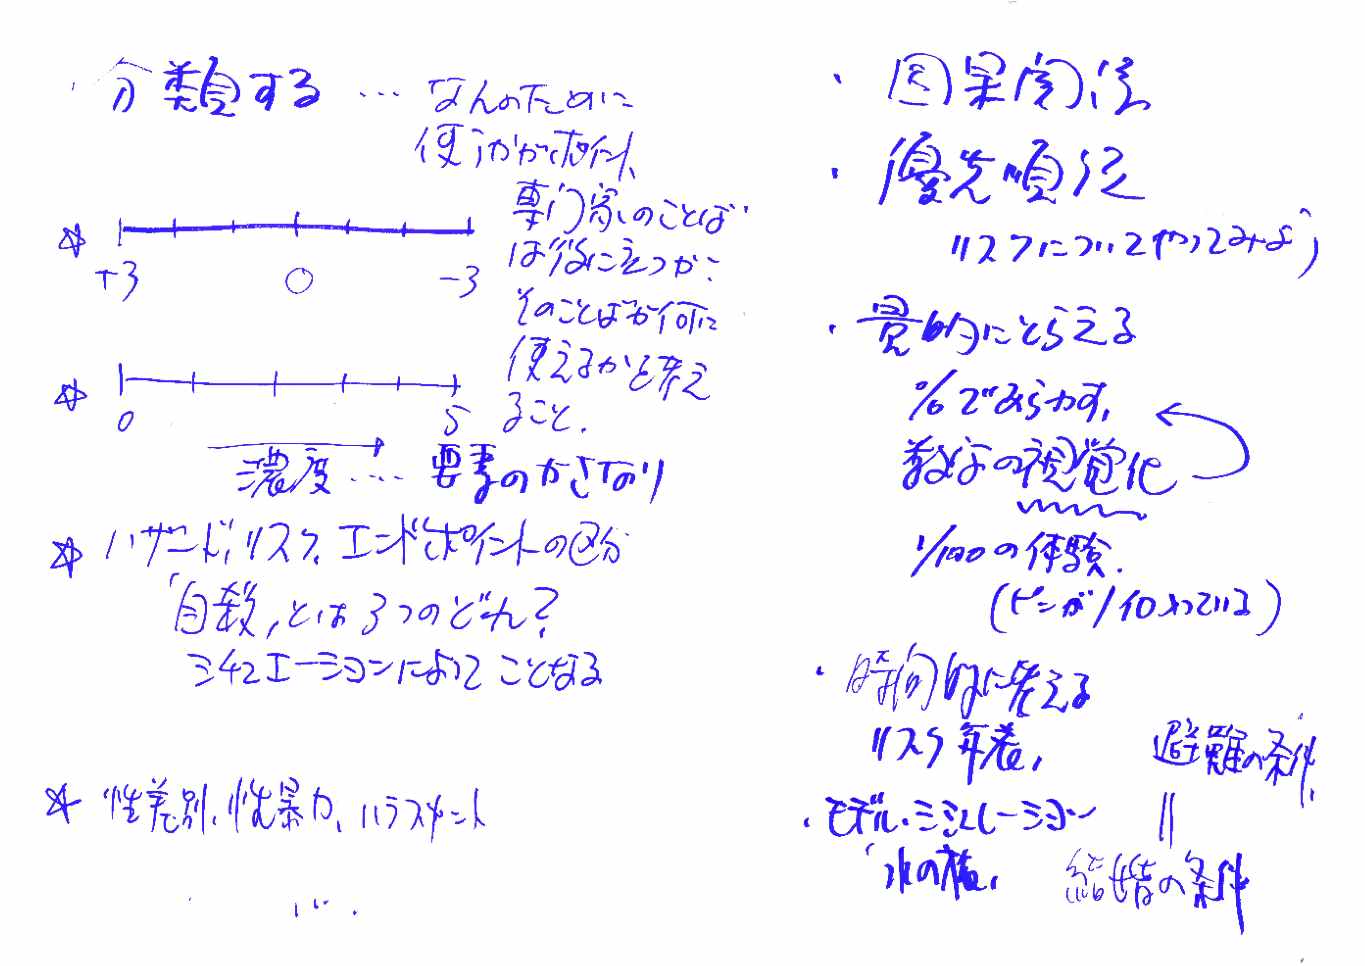 ・分類する … なんのために
使うかがポイント、
専門家のことば
は役に立つか?
そのことばが何に
使えるかと考え
ること.
☆
+3 0 -3
☆
0 5
濃度 … 要素のかさなり
☆ ハザード、リスク、エンドポイントの区分
「自殺」とは3つのどれ?
シチュエーションによってことなる
☆ 性差別、性暴力、ハラスメント
・因果関係
・優先順位
リスクについてやってみよう
・量的にとらえる
%であらわす、
数字の視覚化
1/100の体験.
(ピンが1/10わっている)
・時間的に考える
リスク年表、
・モデル・シミュレーション
「水の旅」
避難の条件
||
結婚の条件